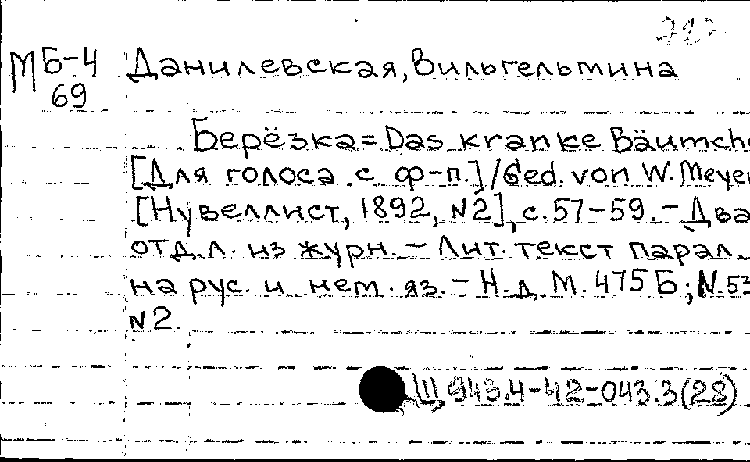 МБ-4 Данилевская, Вильгельмина
69
Берёзка = Das kranke Bäumche
[Для голоса с ф-п.] / Ged. von W. Meyer
[Нувеллист, 1892, N2], с. 57-59. - Два
отд. л. из журн. - Лит. текст парал.
на рус. и нем. яз. - Н.д. М. 475 Б; N. 53
N2.
Щ 943.4-42-043.3(28)